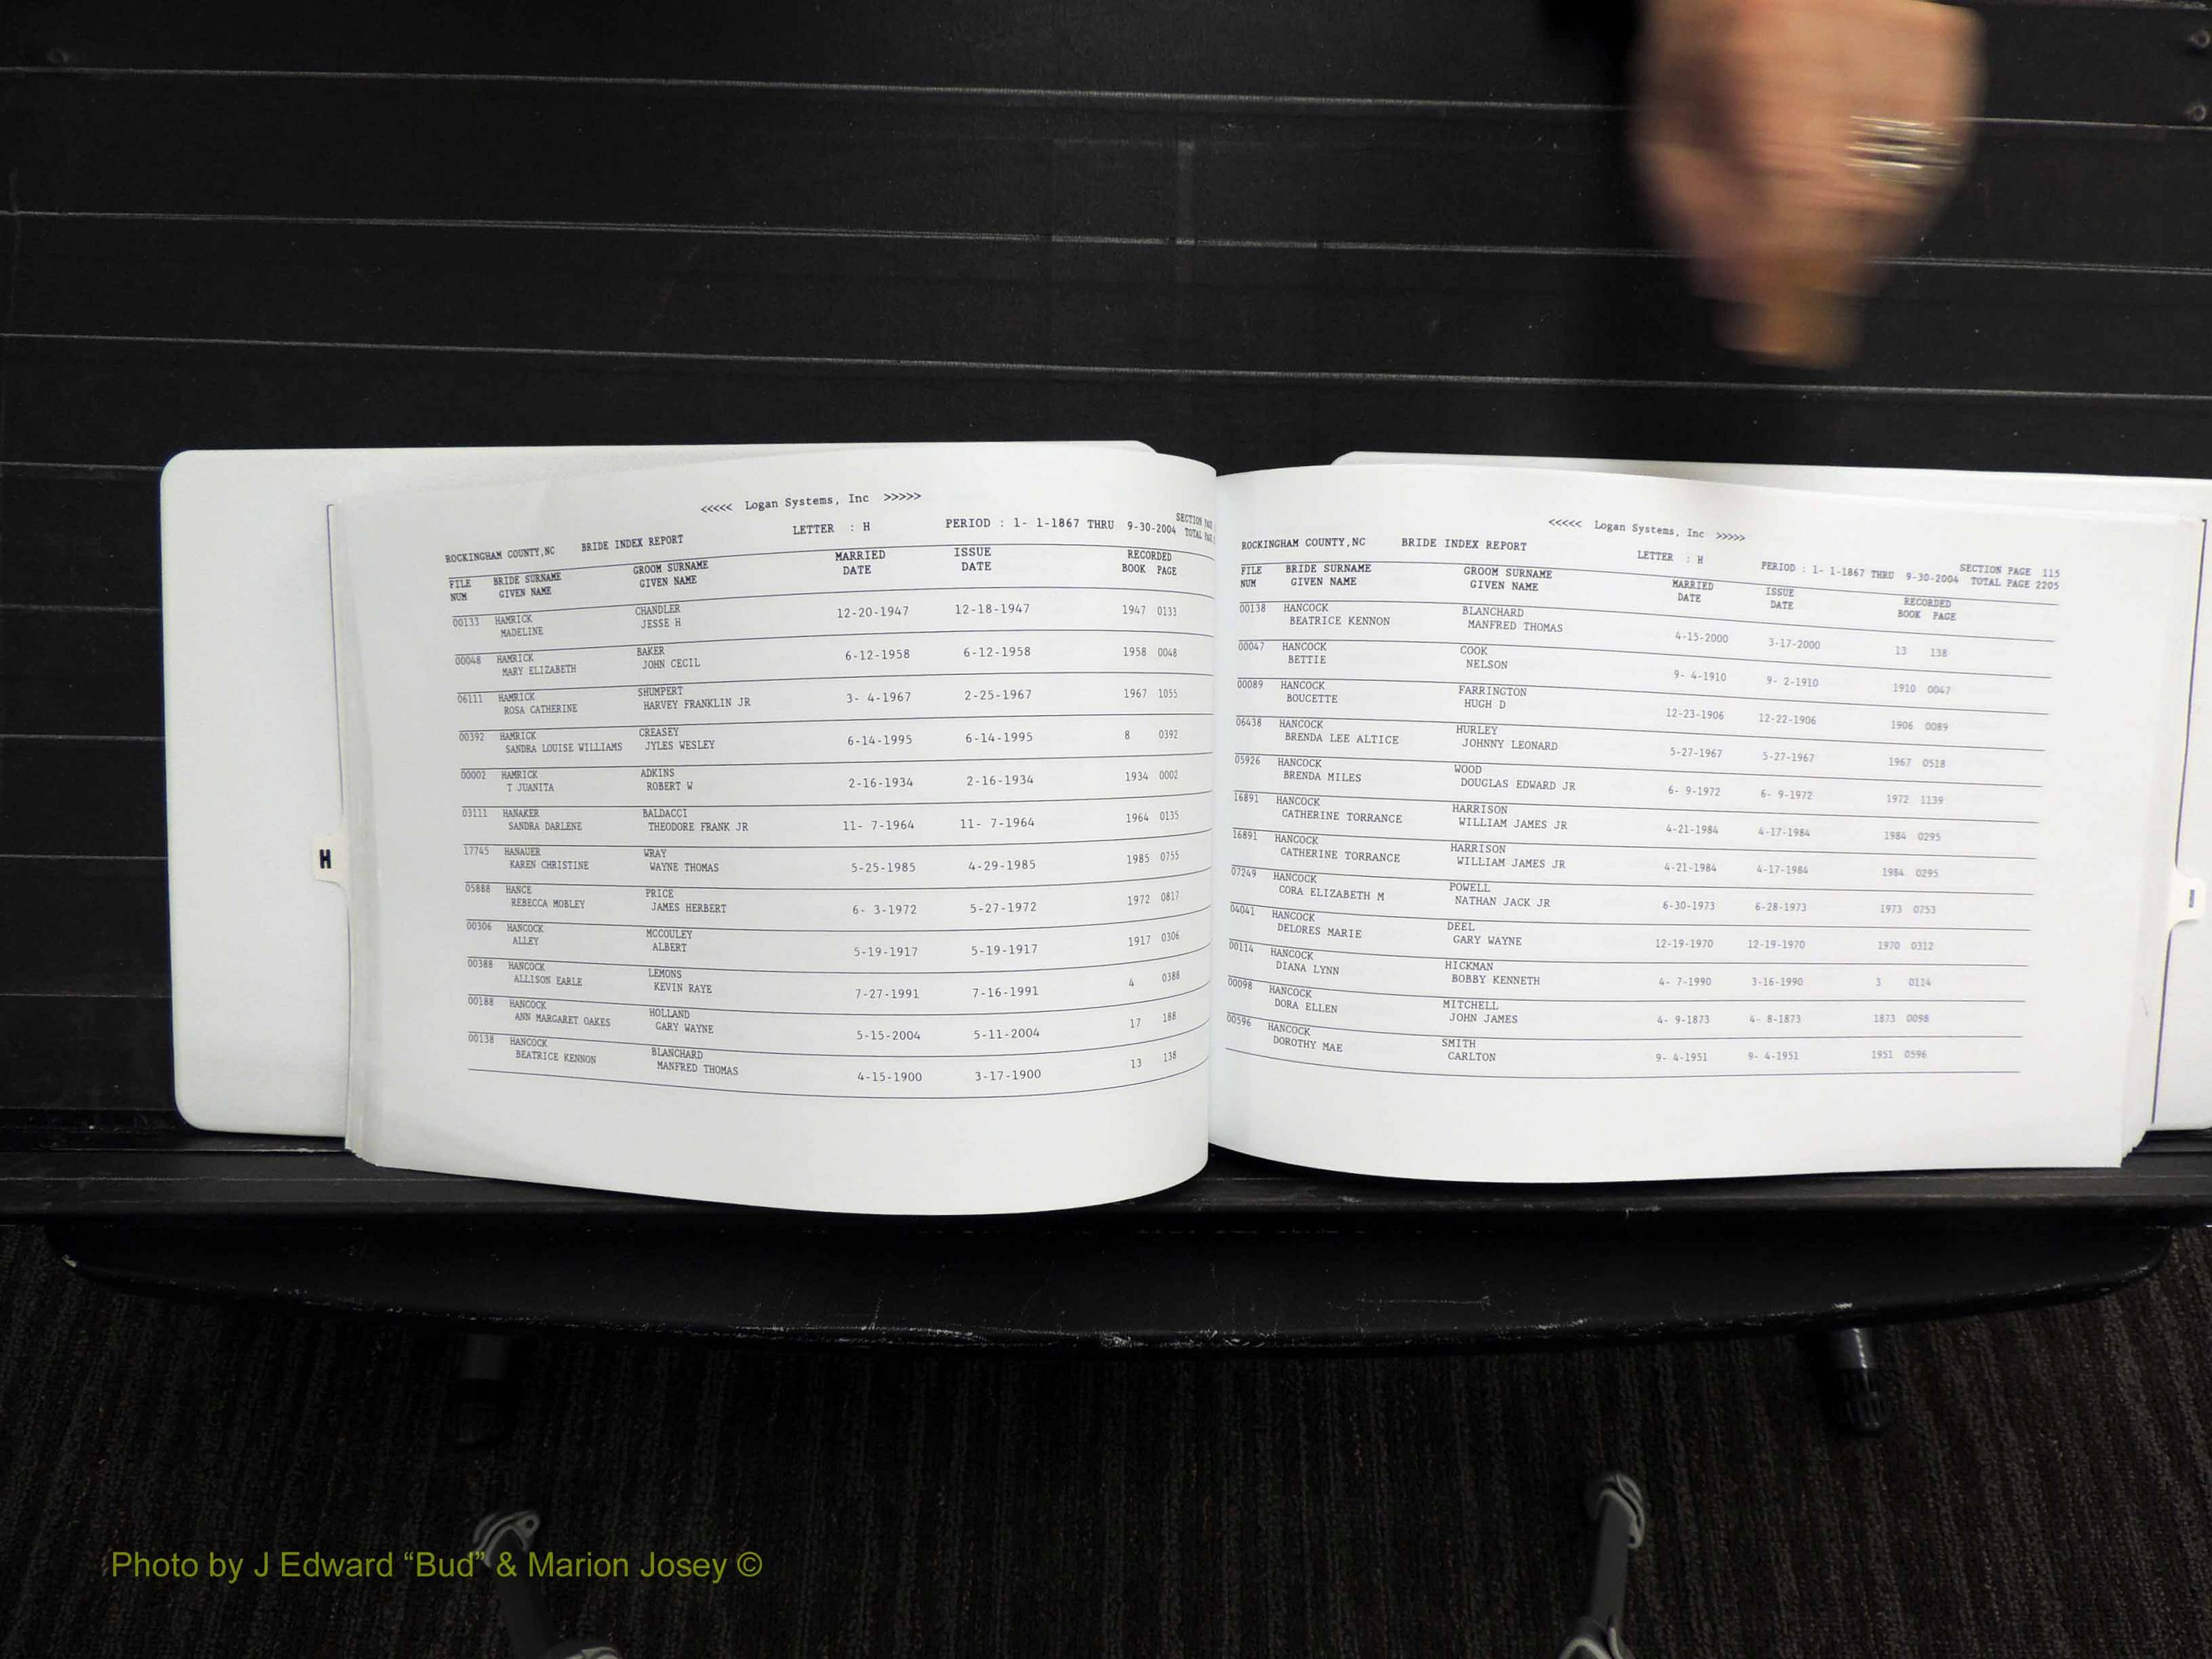 <<<<< Logan Systems, Inc >>>>>
ROCKINGHAM COUNTY,NC BRIDE INDEX REPORT LETTER : H PERIOD : 1- 1-1867 THRU 9-30-2004 SECTION
TOTAL
FILE BRIDE SURNAME GROOM SURNAME MARRIED ISSUE RECORDED
NUM GIVEN NAME GIVEN NAME DATE DATE BOOK PAGE
00133 HAMRICK CHANDLER 12-20-1947 12-18-1947 1947 0133
MADELINE JESSE H
00048 HAMRICK BAKER 6-12-1958 6-12-1958 1958 0048
MARY ELIZABETH JOHN CECIL
06111 HAMRICK SHUMPERT 3- 4-1967 2-25-1967 1967 1055
ROSA CATHERINE HARVEY FRANKLIN JR
00392 HAMRICK CREASEY 6-14-1995 6-14-1995 8 0392
SANDRA LOUISE WILLIAMS JYLES WESLEY
00002 HAMRICK ADKINS 2-16-1934 2-16-1934 1934 0002
T JUANITA ROBERT W
03111 HANAKER BALDACCI 11- 7-1964 11- 7-1964 1964 0135
SANDRA DARLENE THEODORE FRANK JR
17745 HANAUER WRAY 5-25-1985 4-29-1985 1985 0755
KAREN CHRISTINE WAYNE THOMAS
05888 HANCE PRICE 6- 3-1972 5-27-1972 1972 0817
REBECCA MOBLEY JAMES HERBERT
00306 HANCOCK MCCOULEY 5-19-1917 5-19-1917 1917 0306
ALLEY ALBERT
00388 HANCOCK LEMONS 7-27-1991 7-16-1991 4 0388
ALLISON EARLE KEVIN RAYE
00188 HANCOCK HOLLAND 5-15-2004 5-11-2004 17 188
ANN MARGARET OAKES GARY WAYNE
00138 HANCOCK BLANCHARD 4-15-1900 3-17-1900 13 138
BEATRICE KENNON MANFRED THOMAS
H
<<<<< Logan Systems, Inc >>>>>
ROCKINGHAM COUNTY,NC BRIDE INDEX REPORT LETTER : H PERIOD : 1- 1-1867 THRU 9-30-2004 SECTION PAGE 115
TOTAL PAGE 2205
FILE BRIDE SURNAME GROOM SURNAME MARRIED ISSUE RECORDED
NUM GIVEN NAME GIVEN NAME DATE DATE BOOK PAGE
00138 HANCOCK BLANCHARD 4-15-2000 3-17-2000 13 138
BEATRICE KENNON MANFRED THOMAS
00047 HANCOCK COOK 9- 4-1910 9- 2-1910 1910 0047
BETTIE NELSON
00089 HANCOCK FARRINGTON 12-23-1906 12-22-1906 1906 0089
BOUCETTE HUGH D
06438 HANCOCK HURLEY 5-27-1967 5-27-1967 1967 0518
BRENDA LEE ALTICE JOHNNY LEONARD
05926 HANCOCK WOOD 6- 9-1972 6- 9-1972 1972 1139
BRENDA MILES DOUGLAS EDWARD JR
16891 HANCOCK HARRISON 4-21-1984 4-17-1984 1984 0295
CATHERINE TORRANCE WILLIAM JAMES JR
16891 HANCOCK HARRISON 4-21-1984 4-17-1984 1984 0295
CATHERINE TORRANCE WILLIAM JAMES JR
07249 HANCOCK POWELL 6-30-1973 6-28-1973 1973 0753
CORA ELIZABETH M NATHAN JACK JR
04041 HANCOCK DEEL 12-19-1970 12-19-1970 1970 0312
DELORES MARIE GARY WAYNE
00114 HANCOCK HICKMAN 4- 7-1990 3-16-1990 3 0114
DIANA LYNN BOBBY KENNETH
00098 HANCOCK MITCHELL 4- 9-1873 4- 8-1873 1873 0098
DORA ELLEN JOHN JAMES
00596 HANCOCK SMITH 9- 4-1951 9- 4-1951 1951 0596
DOROTHY MAE CARLTON
Photo by J Edward “Bud” & Marion Josey ©